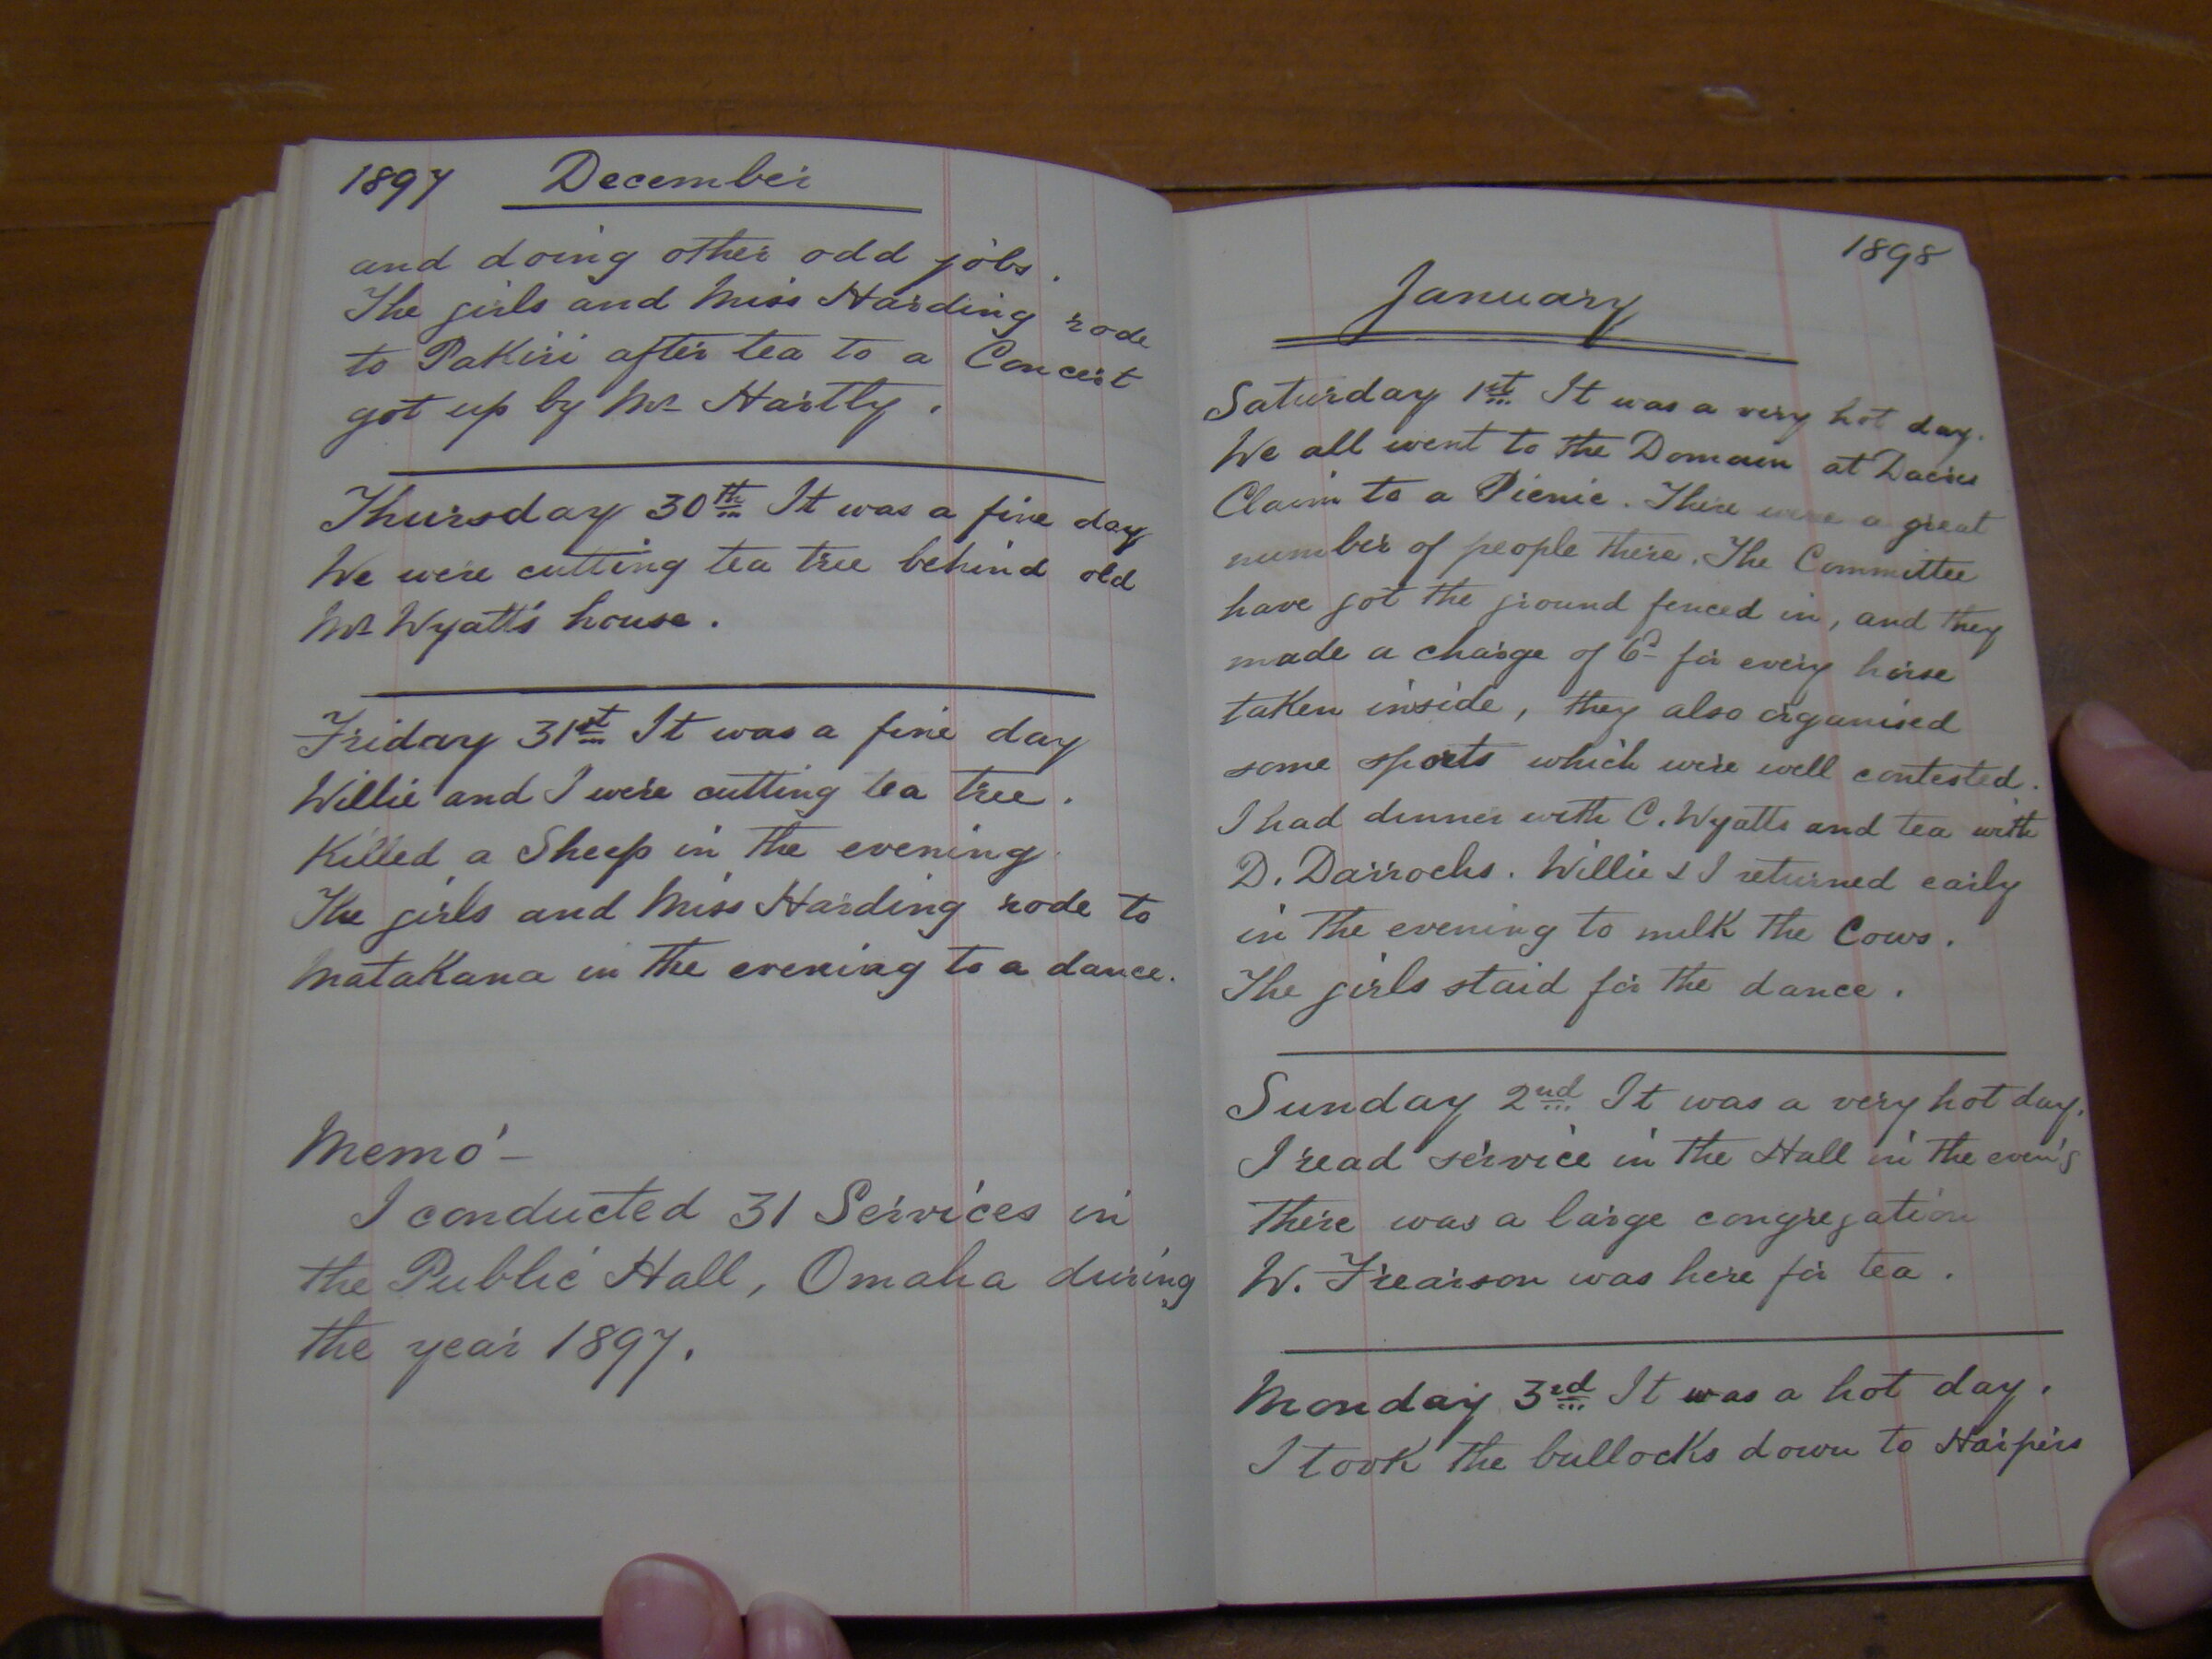 1897 December
and doing other odd jobs.
The girls and Miss Harding rode
to Pakiri after tea to a Concert
got up by Mr Hartly.
Thursday 30th It was a fine day
We were cutting tea tree behind old
Mr Wyatt's house.
Friday 31st It was a fine day
Willie and I were cutting tea tree.
Killed a Sheep in the evening
The girls and Miss Harding rode to
Matakana in the evening to a dance.
Memo -
I conducted 31 Services in
the Public Hall, Omaha during
the year 1897.
1898
January
Saturday 1st It was a very hot day.
We all went to the Domain at Dacres
Claim to a Picnic. There were a great
number of people there. The Committee
have got the ground fenced in, and they
made a charge of 6d for every horse
taken inside, they also organised
some sports which were well contested.
I had dinner with C. Wyatts and tea with
D. Darrochs. Willie & I returned early
in the evening to milk the Cows.
The girls staid for the dance.
Sunday 2nd It was a very hot day.
I read service in the Hall in the even'g
there was a large congregation
W. Frearson was here for tea.
Monday 3rd It was a hot day.
I took the bullocks down to Harpers